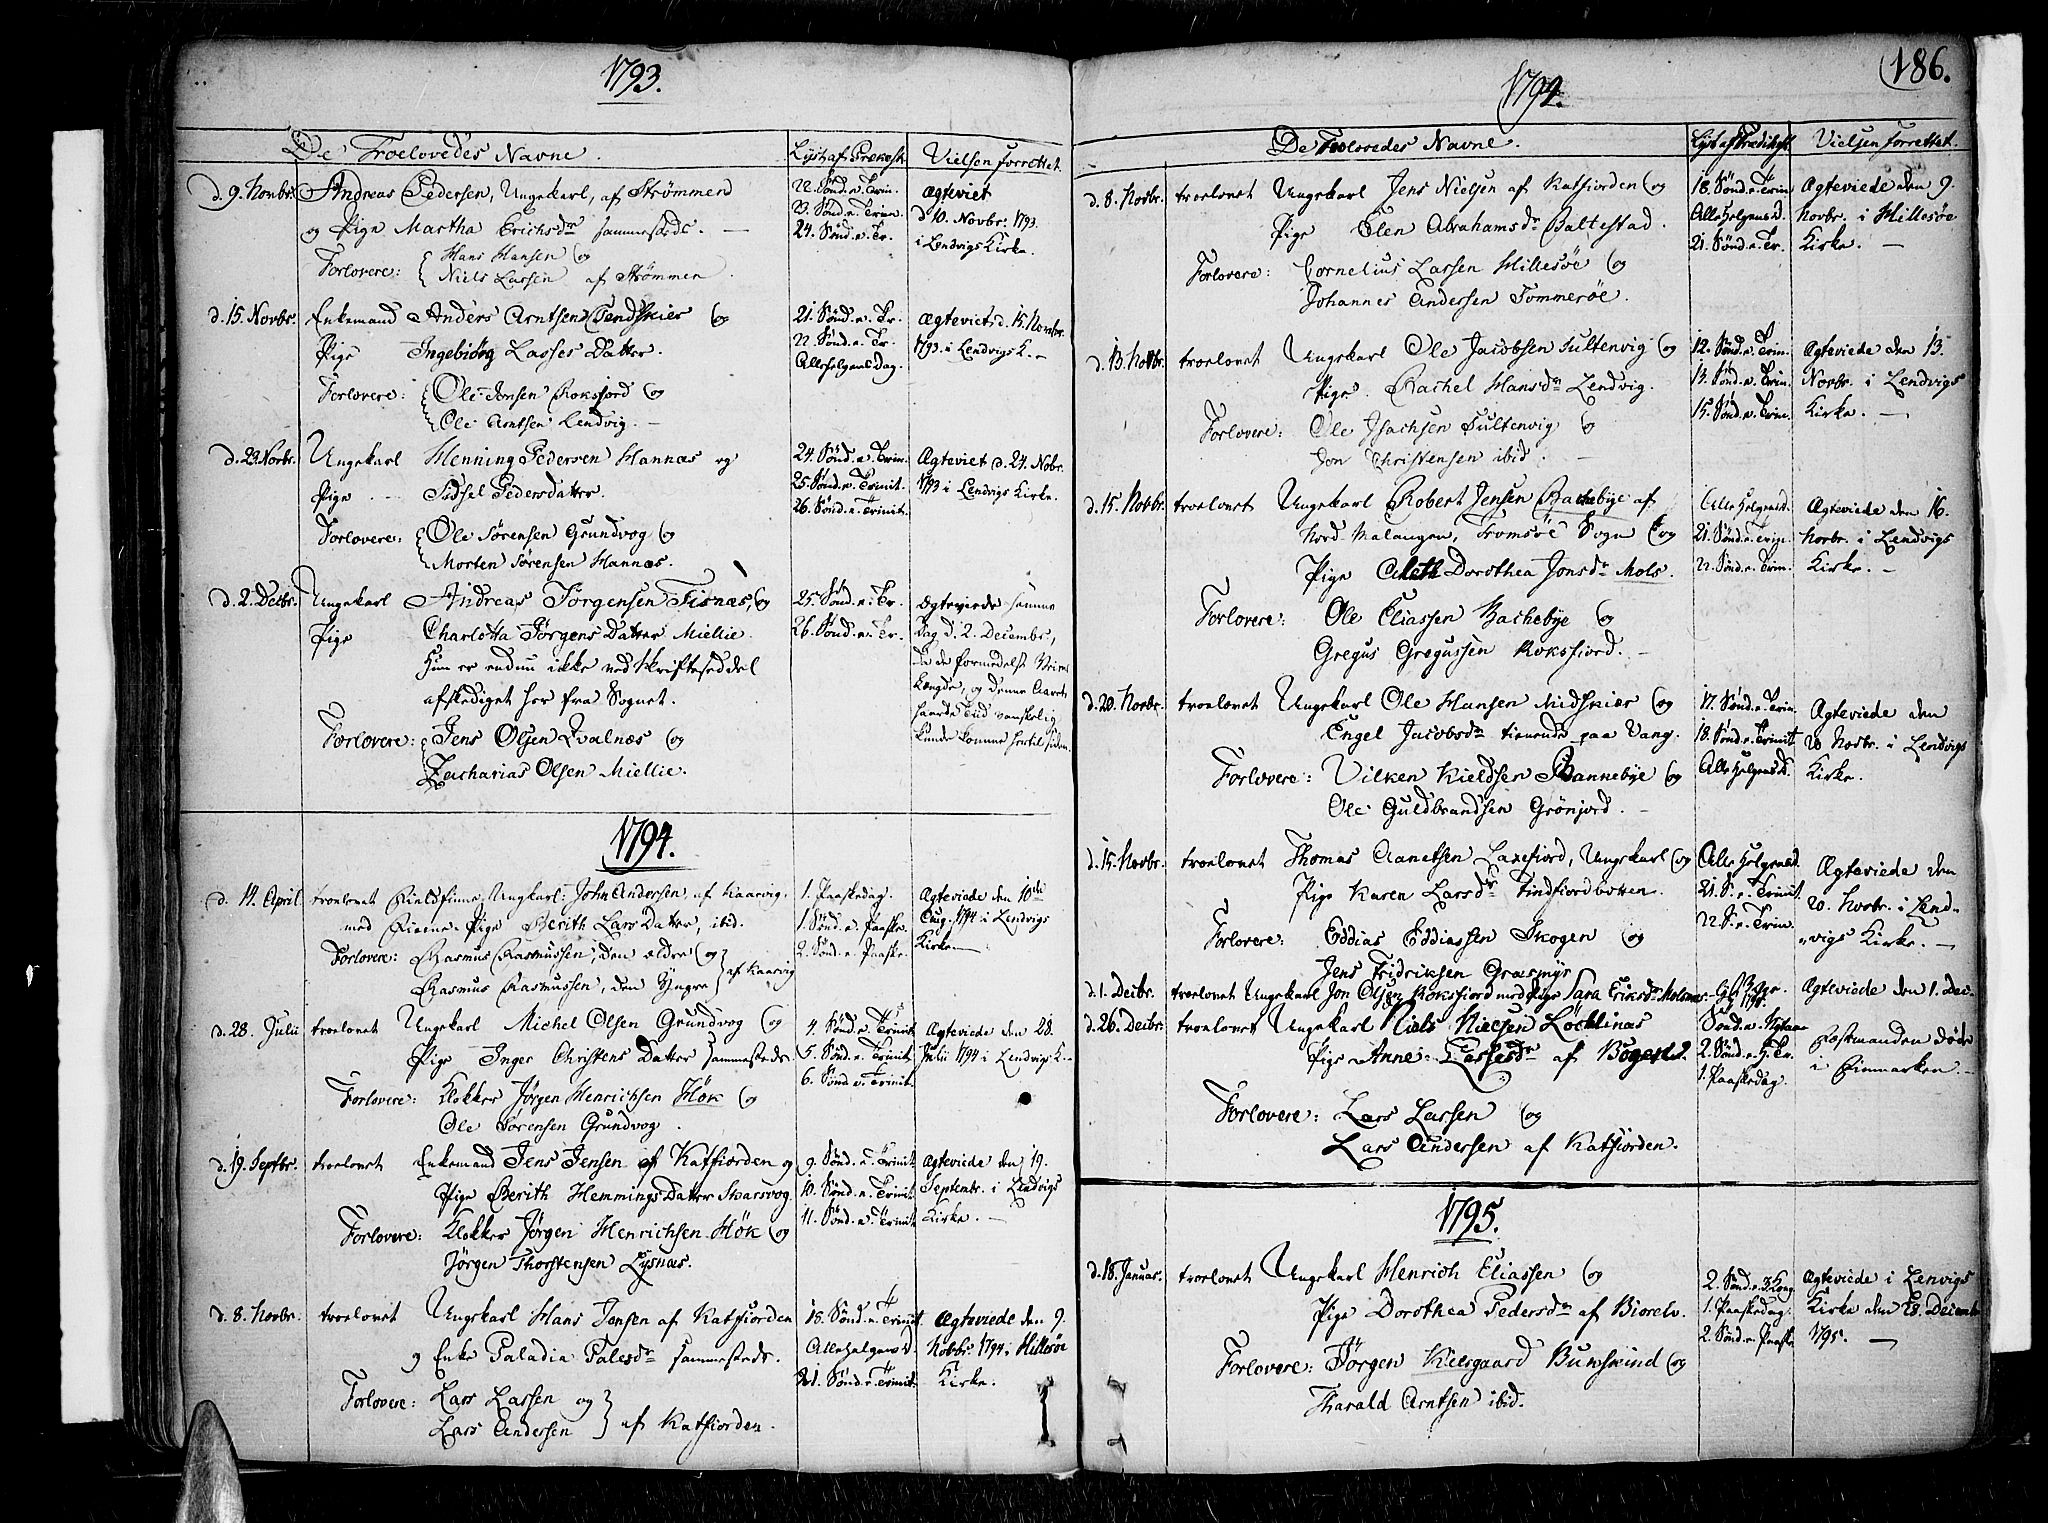 1793.
De Troelovedes Navne.
Lyst af Prækest.
Vielsen forrettet.
d. 9. Novbr. Andreas Pedersen, Ungekarl, af Strømmen
og Pige Martha Erichsdr sammesteds.
Forlovere: Hans Hansen og
Niels Larsen af Strømmen.
22. Sønd. e. Trin.
23. Sønd. e. Trin.
24. Sønd. e. Tr.
Ægteviet
d. 10. Novbr. 1793.
i Lendvigs Kirke.
d. 15. Novbr. Enkemand Anders Arntsen Tendskier og
Pige Ingebiørg Lasses Datter.
Forlovere: Ole Jensen Roksfiord og
Ole Arntsen Lendvig.
21. Sønd. e. Tr.
22. Sønd. e. Tr.
Allehelgens Dag.
Ægteviet d. 15. Novbr.
1793. i Lendvigs K.
d. 23. Novbr. Ungekarl Henning Pedersen Hannæs og
Pige Sidsel Pedersdatter.
Forlovere: Ole Sørensen Grundvog og
Morten Sørensen Hannæs.
24. Sønd. e. Trin.
25. Sønd. e. Trinit.
26. Sønd. e. Trinit.
Ægteviet d. 24. Nobr.
1793 i Lendvigs Kirke.
d. 2. Decbr. Ungekarl Andreas Jørgensen Fisnæs, og
Pige Charlotta Jørgens Datter Miellie.
Hun er endnu ikke ved Skrifteseddel
afskediget her fra Sognet.
Forlovere: Jens Olsen Qvalnæs og
Zacharias Olsen Miellie.
25. Sønd. e. Tr.
26. Sønd. e. Tr.
Ægteviede samme
Dag d. 2. Decembr,
da de formedelst Veiens
Længde, og denne Aarets
haarde Tiid vanskelig
kunde komme hertil siden.
1794.
d. 14. April troelovet Fieldfinne Ungkarl: John Andersen af Kaarvig,
med Finne-Pige Berith Lars Datter, ibid.
Forlovere: Rasmus Rasmussen, den ældre og
Rasmus Rasmussen, den Yngre af Kaarvig
1. Paaskedag.
1. Sønd. e. Paaske.
2. Sønd. e. Paaske.
Ægteviede den 10de
Aug. 1794 i Lendvigs
Kirke
d. 28. Julii troelovet Ungekarl Michel Olsen Grundvog og
Pige Inger Christens Datter sammesteds.
Forlovere: Klokker Jørgen Henrichsen Høk og
Ole Sørensen Grundvog.
4. Sønd. e. Trinit.
5. Sønd. e. Trinit.
6. Sønd. e. Trinit.
Ægteviede den 28.
Julii 1794 i Lendvigs K.
d. 19. Septbr. troelovet Enkemand Jens Jensen af Katfiorden og
Pige Berith Hemmings Datter Skarsvog.
Forlovere: Klokker Jørgen Henrichsen Høk og
Jørgen Thorstensen Lysnæs.
9. Sønd. e. Trinit.
10. Sønd. e. Trinit.
11. Sønd. e. Trinit.
Ægteviede den 19.
Septembr. i Lendvigs
Kirke.
d. 8. Novbr. troelovet Ungkarl Hans Jensen af Katfiorden
og Enke Paladia Palesdr sammesteds.
Forlovere: Lars Lassen og
Lars Andersen af Katfiorden.
18. Sønd. e. Trinit.
Allehelgens D.
21. Sønd. e. Trinit.
Ægteviede den 9.
Novbr. 1794 i Hillesøe
Kirke.
186.
1794.
De Troelovedes Navne.
Lyst af Prædikest.
Vielsen forrettet.
d. 8. Novbr. troelovet Ungekarl Jens Nielsen af Katfiorden og
Pige Elen Abrahamsdr Baltestad.
Forlovere: Cornelius Lassen Hillesøe og
Johannes Andersen Tommerøe.
18. Sønd. e. Trin
Allehelgensd.
21. Sønd. e. Tr.
Ægteviede den 9.
Novbr. i Hillesøe
Kirke.
d. 13. Novbr. troelovet Ungekarl Ole Jacobsen Sultenvig og
Pige Rachel Hansdr Lendvig.
Forlovere: Ole Isachsen Sultenvig og
Jon Christensen ibid.
12. Sønd. e. Trin.
13. Sønd. e. Trin.
15. Sønd. e. Trin.
Ægteviede den 13.
Novbr. i Lendvigs
Kirke.
d. 15. Novbr. troelovet Ungekarl Robert Jensen Bachebye af
Nord-Malangen, Tromsøe Sogn og
Pige Aleth Dorothea Jonsdr Mols.
Forlovere: Ole Eliassen Bachebye og
Gregus Gregussen Roksfiord.
Alle helgensd.
21. Sønd. e. Trin.
22. Sønd. e. Trin.
Ægteviede den 16.
Novbr. i Lendvigs
Kirke.
d. 20. Novbr. troelovet Ungekarl Ole Hansen Midskiær og
Engel Jacobsdr tienende paa Vang.
Forlovere: Vilken Kieldsen Bannebye og
Ole Guldbrandsen Grønjord.
17. Sønd. e. Trin.
18. Sønd. e. Trinit.
Allehelgensd.
Ægteviede den
20 Novbr. i Lendvigs
Kirke.
d. 15. Novbr. troelovet Thomas Aanetsen Laxefiord, Ungekarl og
Pige Karen Larsdr Findfiordbotten.
Forlovere: Eddias Eddiassen Skogen og
Jens Fridriksen Græsmyr
Alle helgensd.
21. S. e. Trinit.
22. S. e. Trin.
Ægteviede den
20. Novbr. i Lend-
vigs Kirke.
d. 1. Decbr. troelovet Ungekarl Jon Olsen Roksfiord med Pige Sara Eriksdr Molsnæs
Ægteviede den 1. Dec.
d. 26. Decbr. troelovet Ungekarl Niels Nielsen Løchlinæs
Pige Anne Lassesdr af Bogen.
Forlovere: Lars Lassen og
Lars Andersen af Katfiorden.
Sønd. e. Nytaar
2. Sønd. e. H. Tr.
1. Paaskedag.
Fæstmanden døde
i Finmarken.
1795.
d. 18. Januar. troelovet Ungekarl Henrich Eliassen og
Pige Dorothea Pedersdr af Biorelv.
Forlovere: Jørgen Kielsgaard Bunskind og
Harald Arntsen ibid.
2. Sønd. e. 3 Kong.
1. Paaskedag.
2. Sønd. e. Paaske
Ægteviede i Lenvigs
Kirke den 28. Decembr
1795.